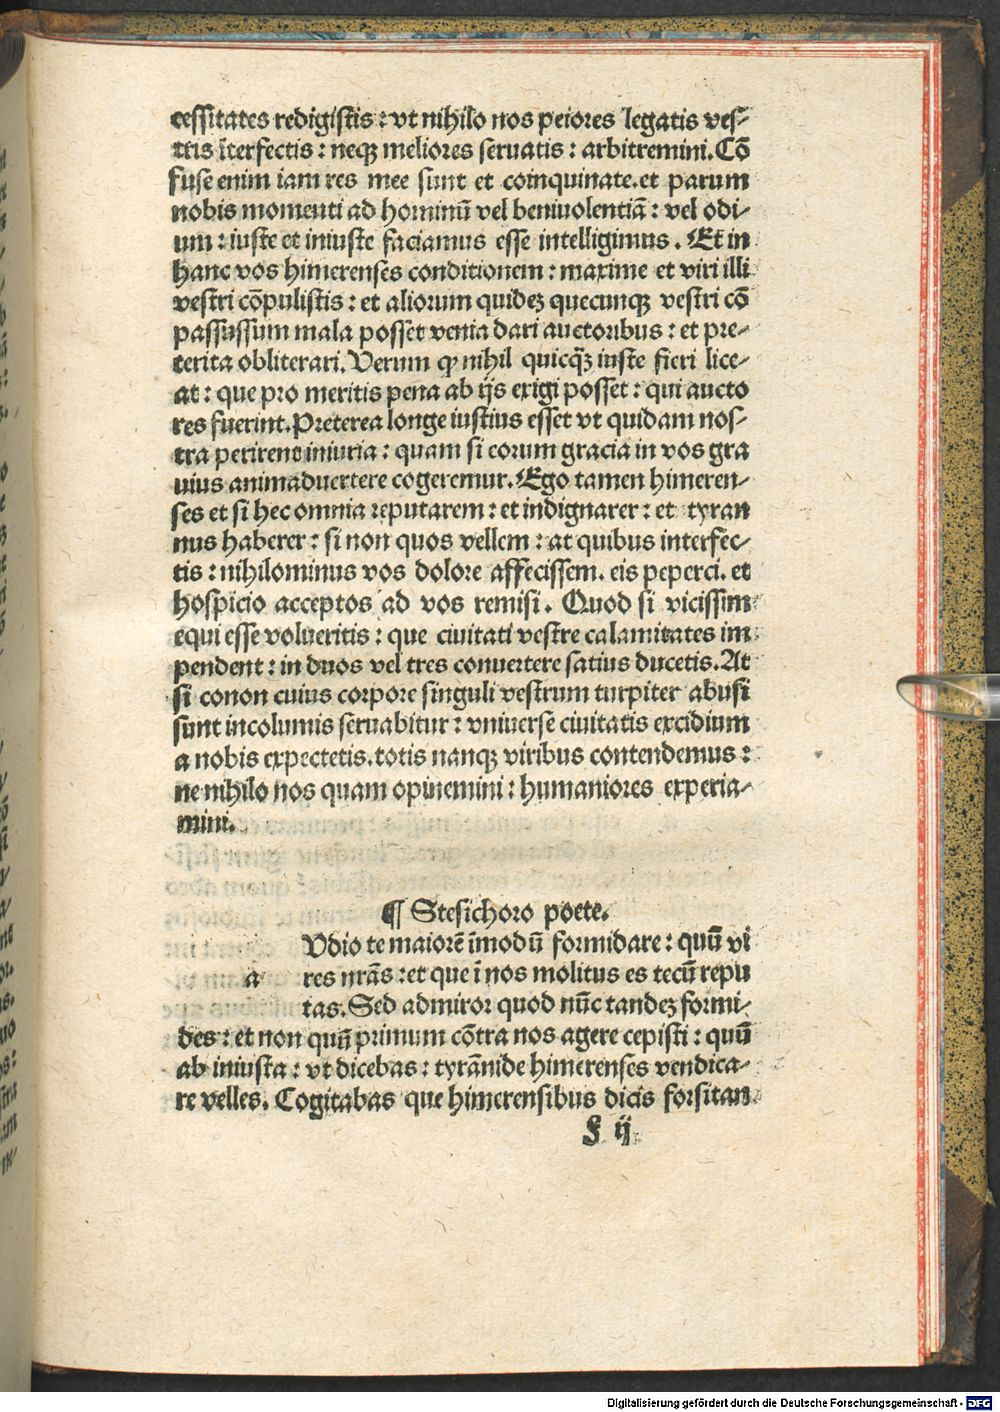 cessitates redigistis : vt nihilo nos peiores legatis ves⸗
tris īterfectis : neqꝫ meliores seruatis : arbitremini. Cō
fuse enim iam res mee sunt et coinquinate. et parum
nobis momenti ad hominū vel beniuolentiā : vel odi⸗
um : iuste et iniuste faciamus esse intelligimus . Et in
hanc vos himerenses conditionem : maxime et viri illi
vestri cōpulistis : et aliorum quideꝫ quecunqꝫ vestri cō
passussum mala posset venia dari auctoribus : et pre⸗
terita obliterari. Verum ꝙ nihil quicqꝫ̄ iuste fieri lice⸗
at : que pro meritis pena ab ijs exigi posset : qui aucto
res fuerint. Preterea longe iustius esset vt quidam nos⸗
tra perirent iniuria : quam si eorum gracia in vos gra
uius animaduertere cogeremur. Ego tamen himeren⸗
ses et si hec omnia reputarem : et indignarer : et tyran
nus haberer : si non quos vellem : at quibus interfec⸗
tis : nihilominus vos dolore affecissem. eis peperci. et
hospicio acceptos ad vos remisi. Quod si vicissim
equi esse volueritis : que ciuitati vestre calamitates im
pendent : in duos vel tres conuertere satius ducetis. At
si conon cuius corpore singuli vestrum turpiter abusi
sunt incolumis seruabitur : vniuerse ciuitatis excidium
a nobis expectetis. totis nanqꝫ viribus contendemus :
ne nihilo nos quam opinemini : humaniores experia⸗
mini.
¶ Stesichoro poete.
Vdio te maiorē īmodū formidare : quū vi
a res nrās : et que ī nos molitus es tecū repu
tas. Sed admiror quod nūc tandeꝫ formi⸗
des : et non quū primum cōtra nos agere cepisti : quū
ab iniusta : vt dicebas : tyrānide himerenses vendica⸗
re velles. Cogitabas que himerensibus dicis forsitan
g ij
Digitalisierung gefördert durch die Deutsche Forschungsgemeinschaft - DFG